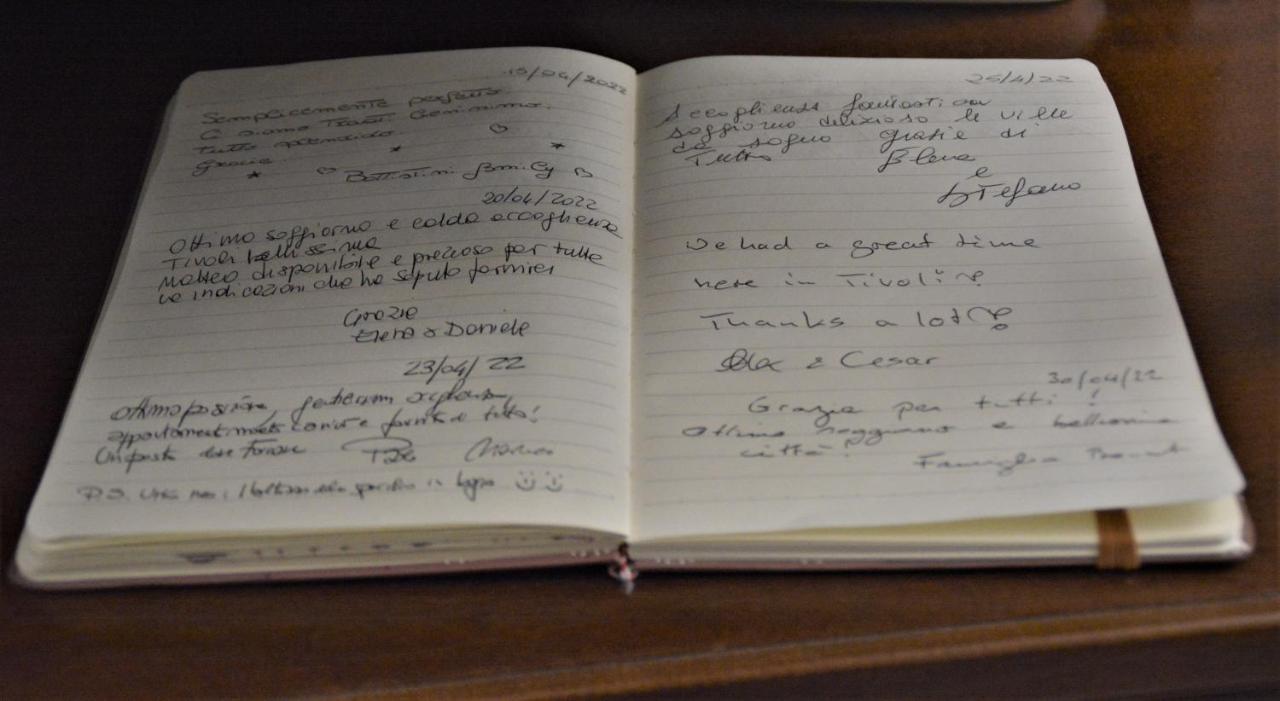 15/04/2022
Semplicemente perfetto
Ci siamo trovati benissimo.
tutto splendido.
Grazie.
Battistini family
20/04/2022
Ottimo soggiorno e calda accoglienza
Tivoli bellissima
Matteo disponibile e prezioso per tutte
le indicazioni che ha saputo fornirci
Grazie
Elena & Daniele
23/04/22
Ottima posizione,
appartamento e fornito di tutto!
P.S.
25/4/22
Accoglienza fantastica
soggiorno delizioso le ville
da sogno grazie di
Tutto Elena
e
Stefano
We had a great time
here in Tivoli
Thanks a lot
& Cesar
30/04/22
Grazie per tutti!
Ottimo soggiorno e bellissima
città!
Famiglia